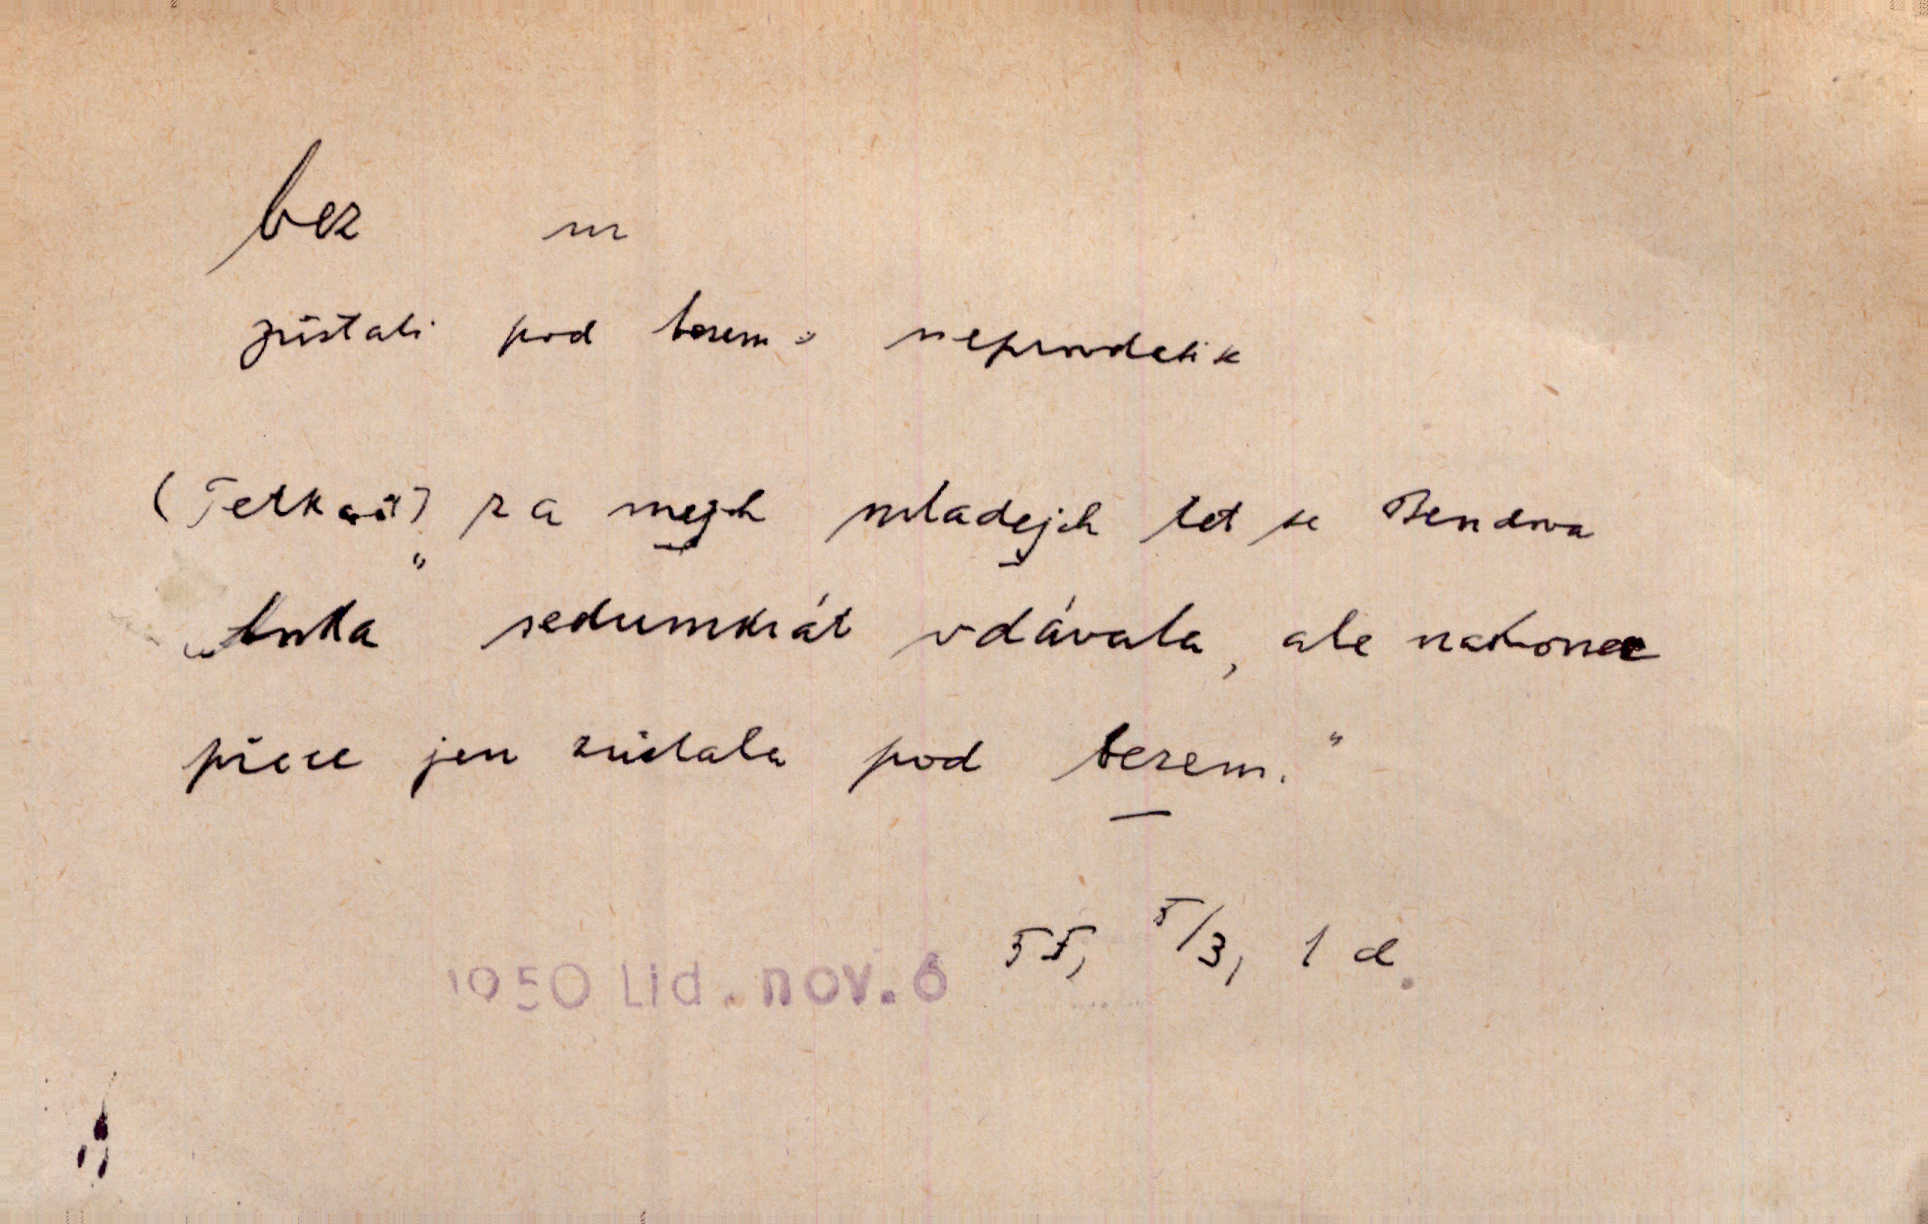 bez m
zůstati pod bezem = neprovdati se
za mejch mladejch let se Bendova
Anka sedumkrát vdávala, ale nakonec
přece jen zůstala pod bezem."
55, 5/3, 1 d.
1950 Lid. nov. 6